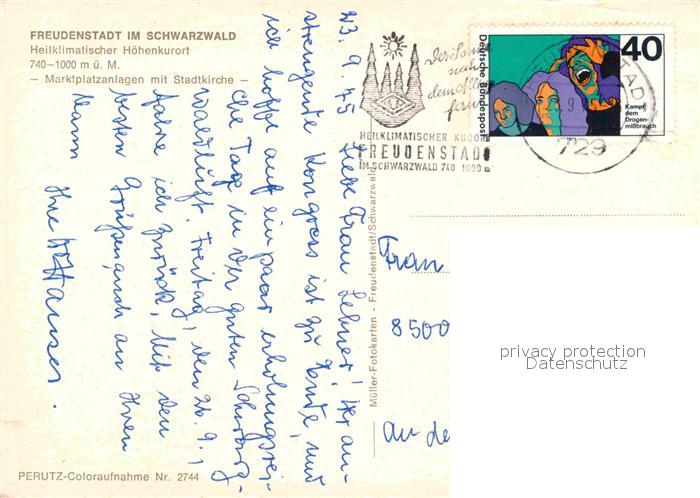 FREUDENSTADT IM SCHWARZWALD
Heilklimatischer Höhenkurort
740-1000 m ü. M.
— Marktplatzanlagen mit Stadtkirche —
23. 9. 75 Liebe Frau Lehner! Der an-
strengende Kongress ist zu Ende, und
ich hoffe auf ein paar erholungsrei-
che Tage in der guten Schwarz-
waldluft. Freitag, den 26. 9.,
fahre ich zurück. Mit den
besten Grüßen, auch an Ihren
Mann
Ihre Hauser.
PERUTZ-Coloraufnahme Nr. 2744
Müller-Fotokarten - Freudenstadt/Schwarzwald
Der Sonne
nah
dem All
fern
HEILKLIMATISCHER KURORT
FREUDENSTADT
IM SCHWARZWALD 740 1000 m
729
Deutsche Bundespost
40
Kampf
dem
Drogen-
mißbrauch
Frau
8500
An de
privacy protection
Datenschutz